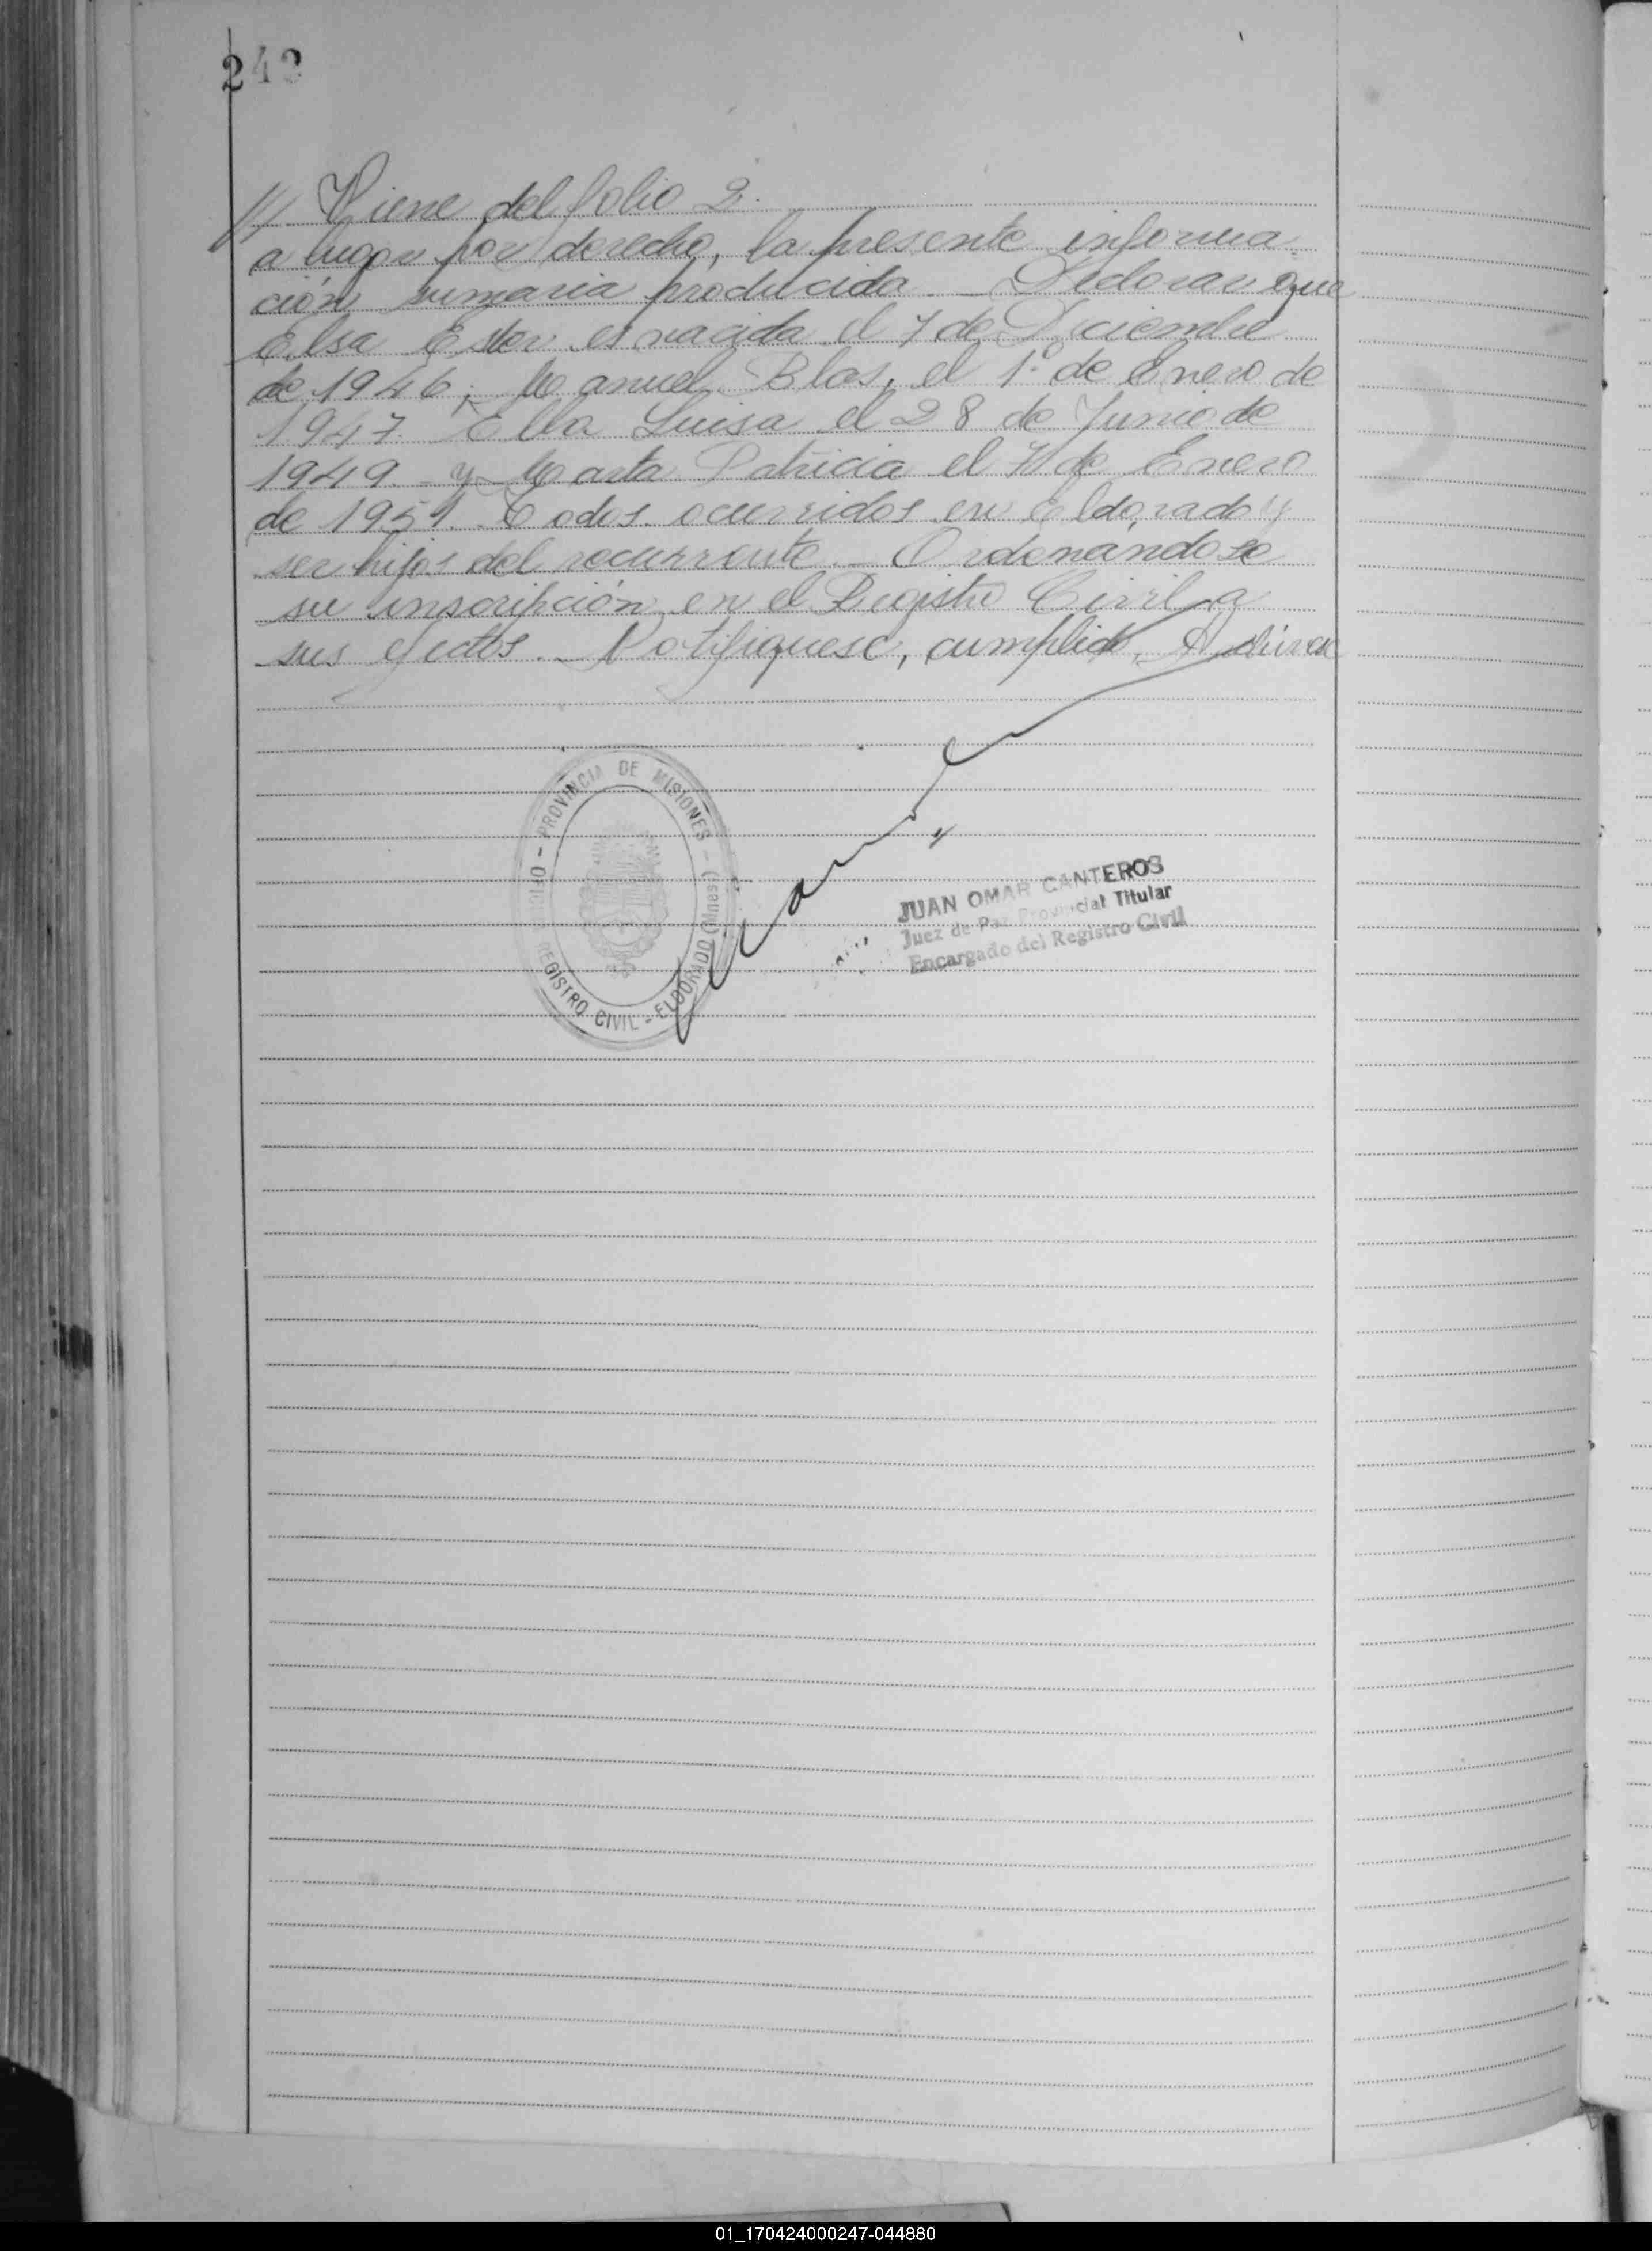 242
/// Viene del folio 2.
a lugar por derecho, la presente informa
ción sumaria producida. — Declarar que
Elsa Ester es nacida el 7 de Diciembre
de 1946; Manuel Blas, el 1º de Enero de
1947. Elba Luisa el 28 de Junio de
1949. y Marta Patricia el de Enero
de 1951. Todos ocurridos en Eldorado y
ser hijos del recurrente. — Ordenándose
su inscripción en el Registro Civil a
sus efectos. Notifíquese, cumplido, Archivar
PROVINCIA DE MISIONES
REGISTRO CIVIL - ELDORADO (Mnes)
JUAN OMAR CANTEROS
Juez de Paz Provincial Titular
Encargado del Registro Civil
01_170424000247-044880